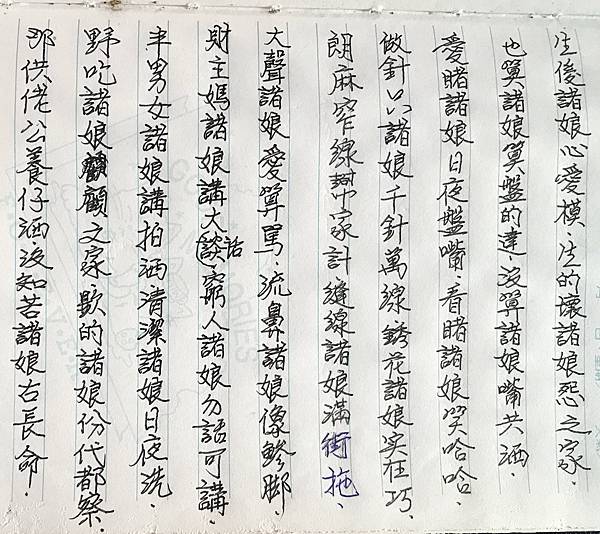 生俊諸娘心愛模.生的壞諸娘怨之家.
也算諸娘算盤的達.沒算諸娘嘴共洒.
愛賭諸娘日夜盤嘴.看賭諸娘笑哈哈.
做針只諸娘千針萬線銹花諸娘实在巧.
朗麻窄線幇家計縫線諸娘滿街拖.
大聲諸娘愛算罵.流鼻諸娘像鰺脚.
財主媽諸娘講大談話.窮人諸娘勿話可講.
半男女諸娘講拍洒清潔諸娘日夜洗.
野吃諸娘顧之家.歇的諸娘份代都察.
那供佬公養仔洒.沒知苦諸娘右長命.